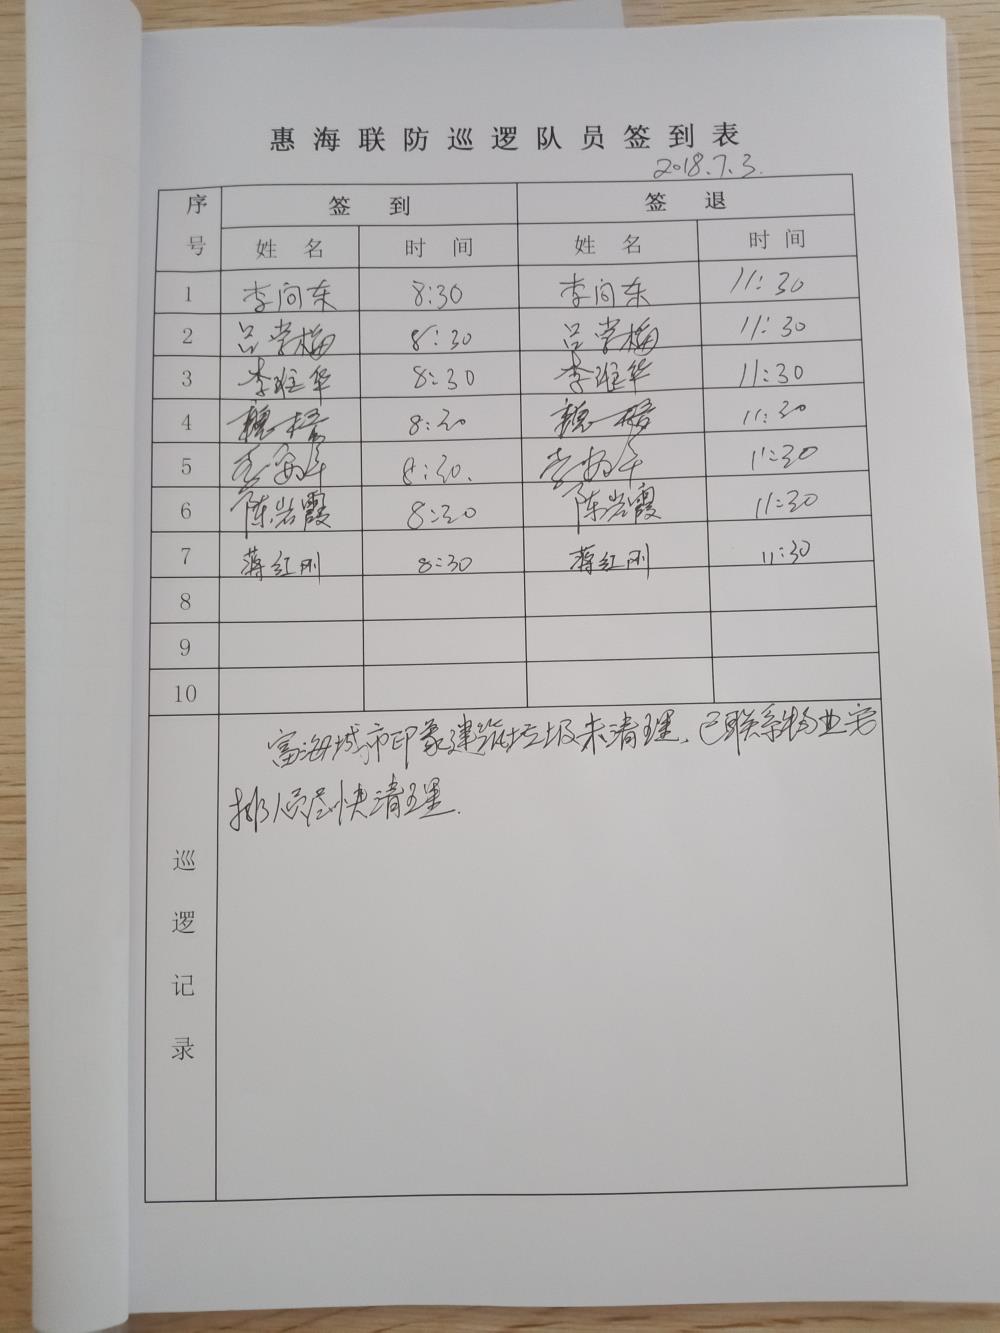 惠海联防巡逻队员签到表
2018.7.3.
序号 签到 签退
姓名 时间 姓名 时间
1 李向东 8:30 李向东 11:30
2 吕常梅 8:30 吕常梅 11:30
3 李维华 8:30 李维华 11:30
4 8:30 11:30
5 8:30. 11:30
6 陈岩霞 8:30 陈岩霞 11:30
7 蒋红刚 8:30 蒋红刚 11:30
8
9
10
巡逻记录
富海城市印象建筑垃圾未清理,已联系物业安
排人员尽快清理.